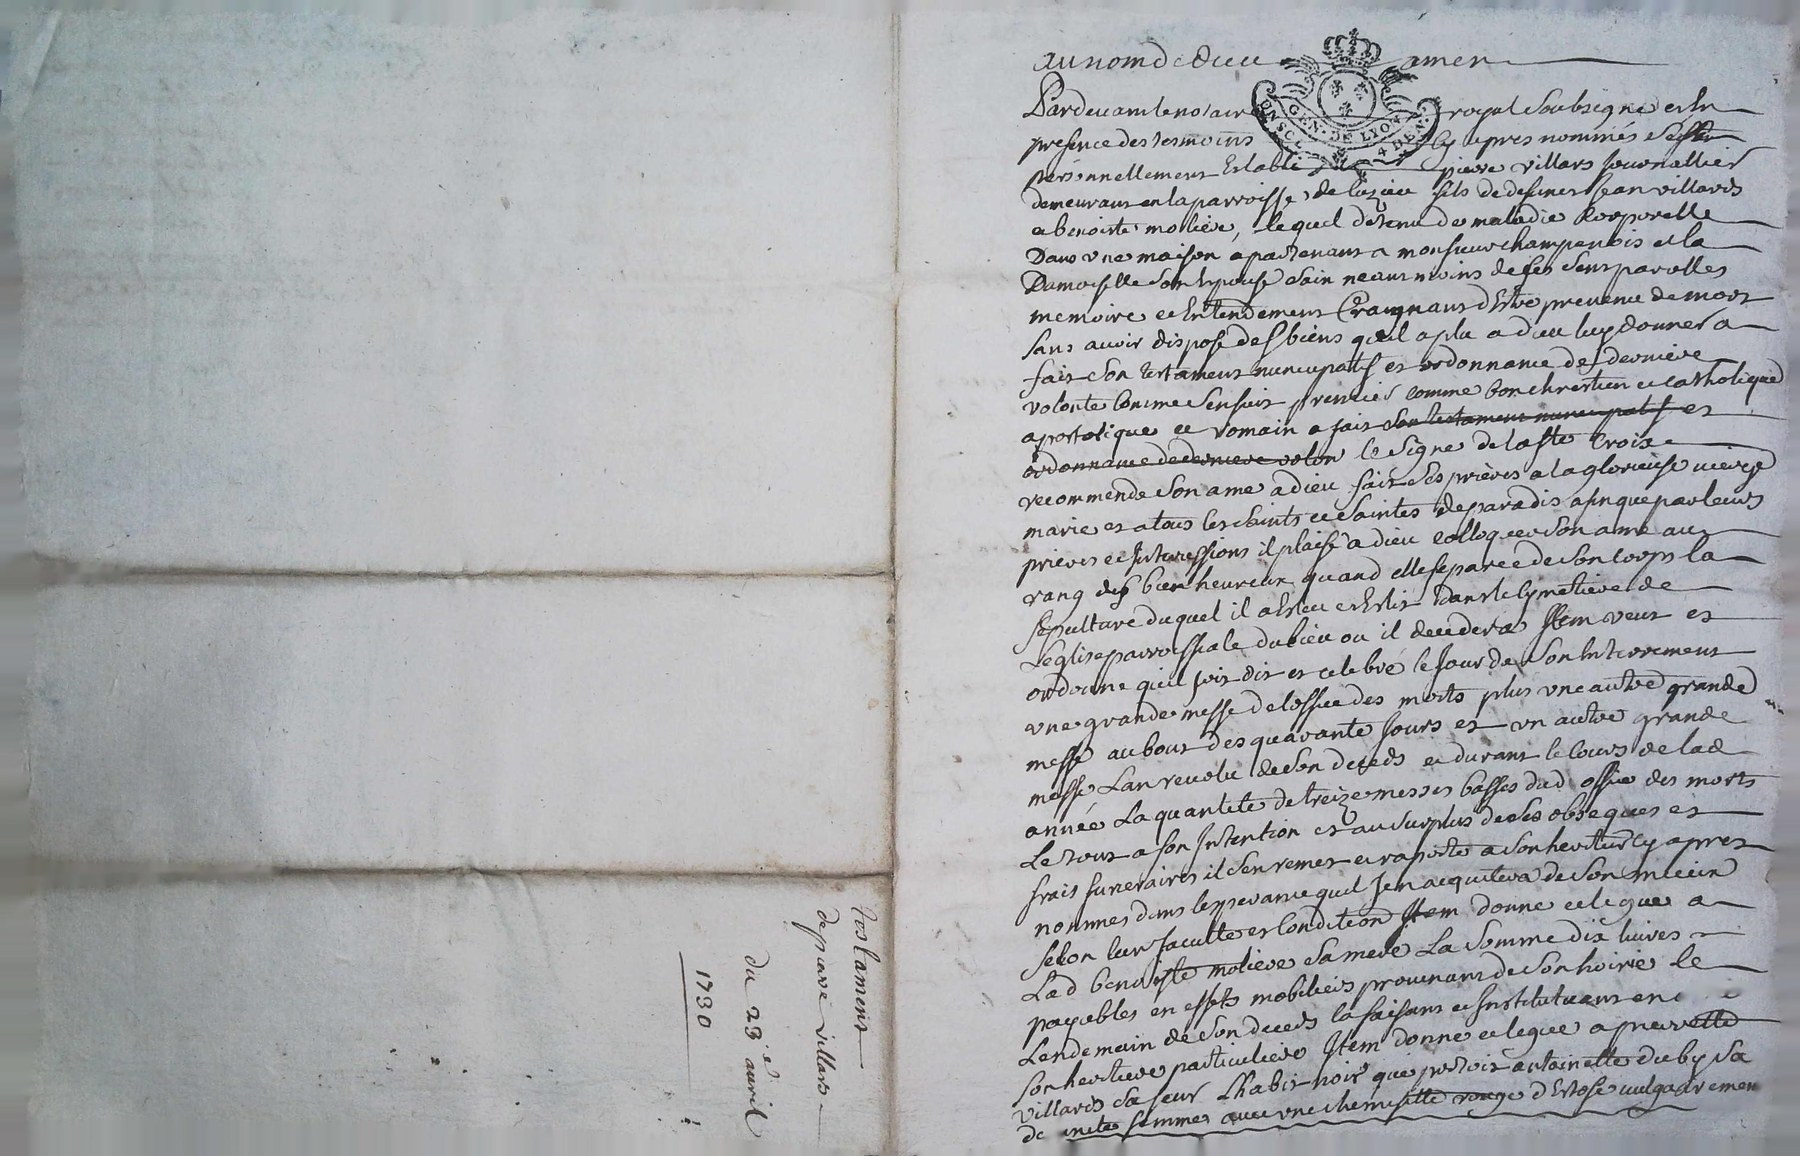 au nom de dieu amen
Pardevant le notaire royal soubsigné et en
presence des tesmoins cy apres nommés
personnellement Estably pierre villars journallier
demeurant en la parroisse de luzieu fils de defunct Jean villards
a benoiste moliere, lequel detenu de maladie korporelle
Dans une maison apartenant a monsieur champenois et la
Damoiselle son Epouse sain neautmoins de ses sens parolles
memoire et Entendement Craignant d'Estre prevenu de mort
sans avoir disposé des biens quil a plu a dieu luy donner a
fait son testament nuncupatif et ordonnance de derniere
volonté comme sensuit premier comme bon chrestien et catholique
apostolique et romain a fait son testament nuncupatif et
ordonnance de derniere volon le signe de la ste Croix
recommende son ame a dieu fait ses prieres a la glorieuse vierge
marie et a tous les saints et saintes de paradis afin que par leurs
prieres et Intercessions il plaise a dieu colloquer son ame au
rang des bien heureux quand elle separee de son corps la
sepulture duquel il a Esleu et Eslit dans le cymetiere de
Leglise parroissiale du lieu ou il decedera Item veut et
ordonne quil soit dit et celebré le Jour de son Enterrement
une grande messe de loffice des morts plus une autre grande
messe au bout des quarante Jours et un autre grande
messe Lan revolu de son deceds et durant le cours de lad
année La quantité de treize messes basses dud office des morts
Le tout a son Intention et au surplus de ses obseques et
frais funeraires il sen remet et raporte a son heritier cy apres
nommés dans lesperance quil sen acquitera de son mieux
selon leur faculté et Condition Item donne et legue a
Lad benoiste moliere sa mere La somme dix livres
payables en effets mobiliers provenants de son hoirie le
Lendemain de son deceds la faisant et Instituant en
son heritiere particuliere Item donne et legue a pierrette
villards sa seur Lhabit noir que portoit antoinette duby sa
femme avec une chemisette rouge d'Estofe vulgairemen
Testament
de pierre villars
du 23e avril
1730